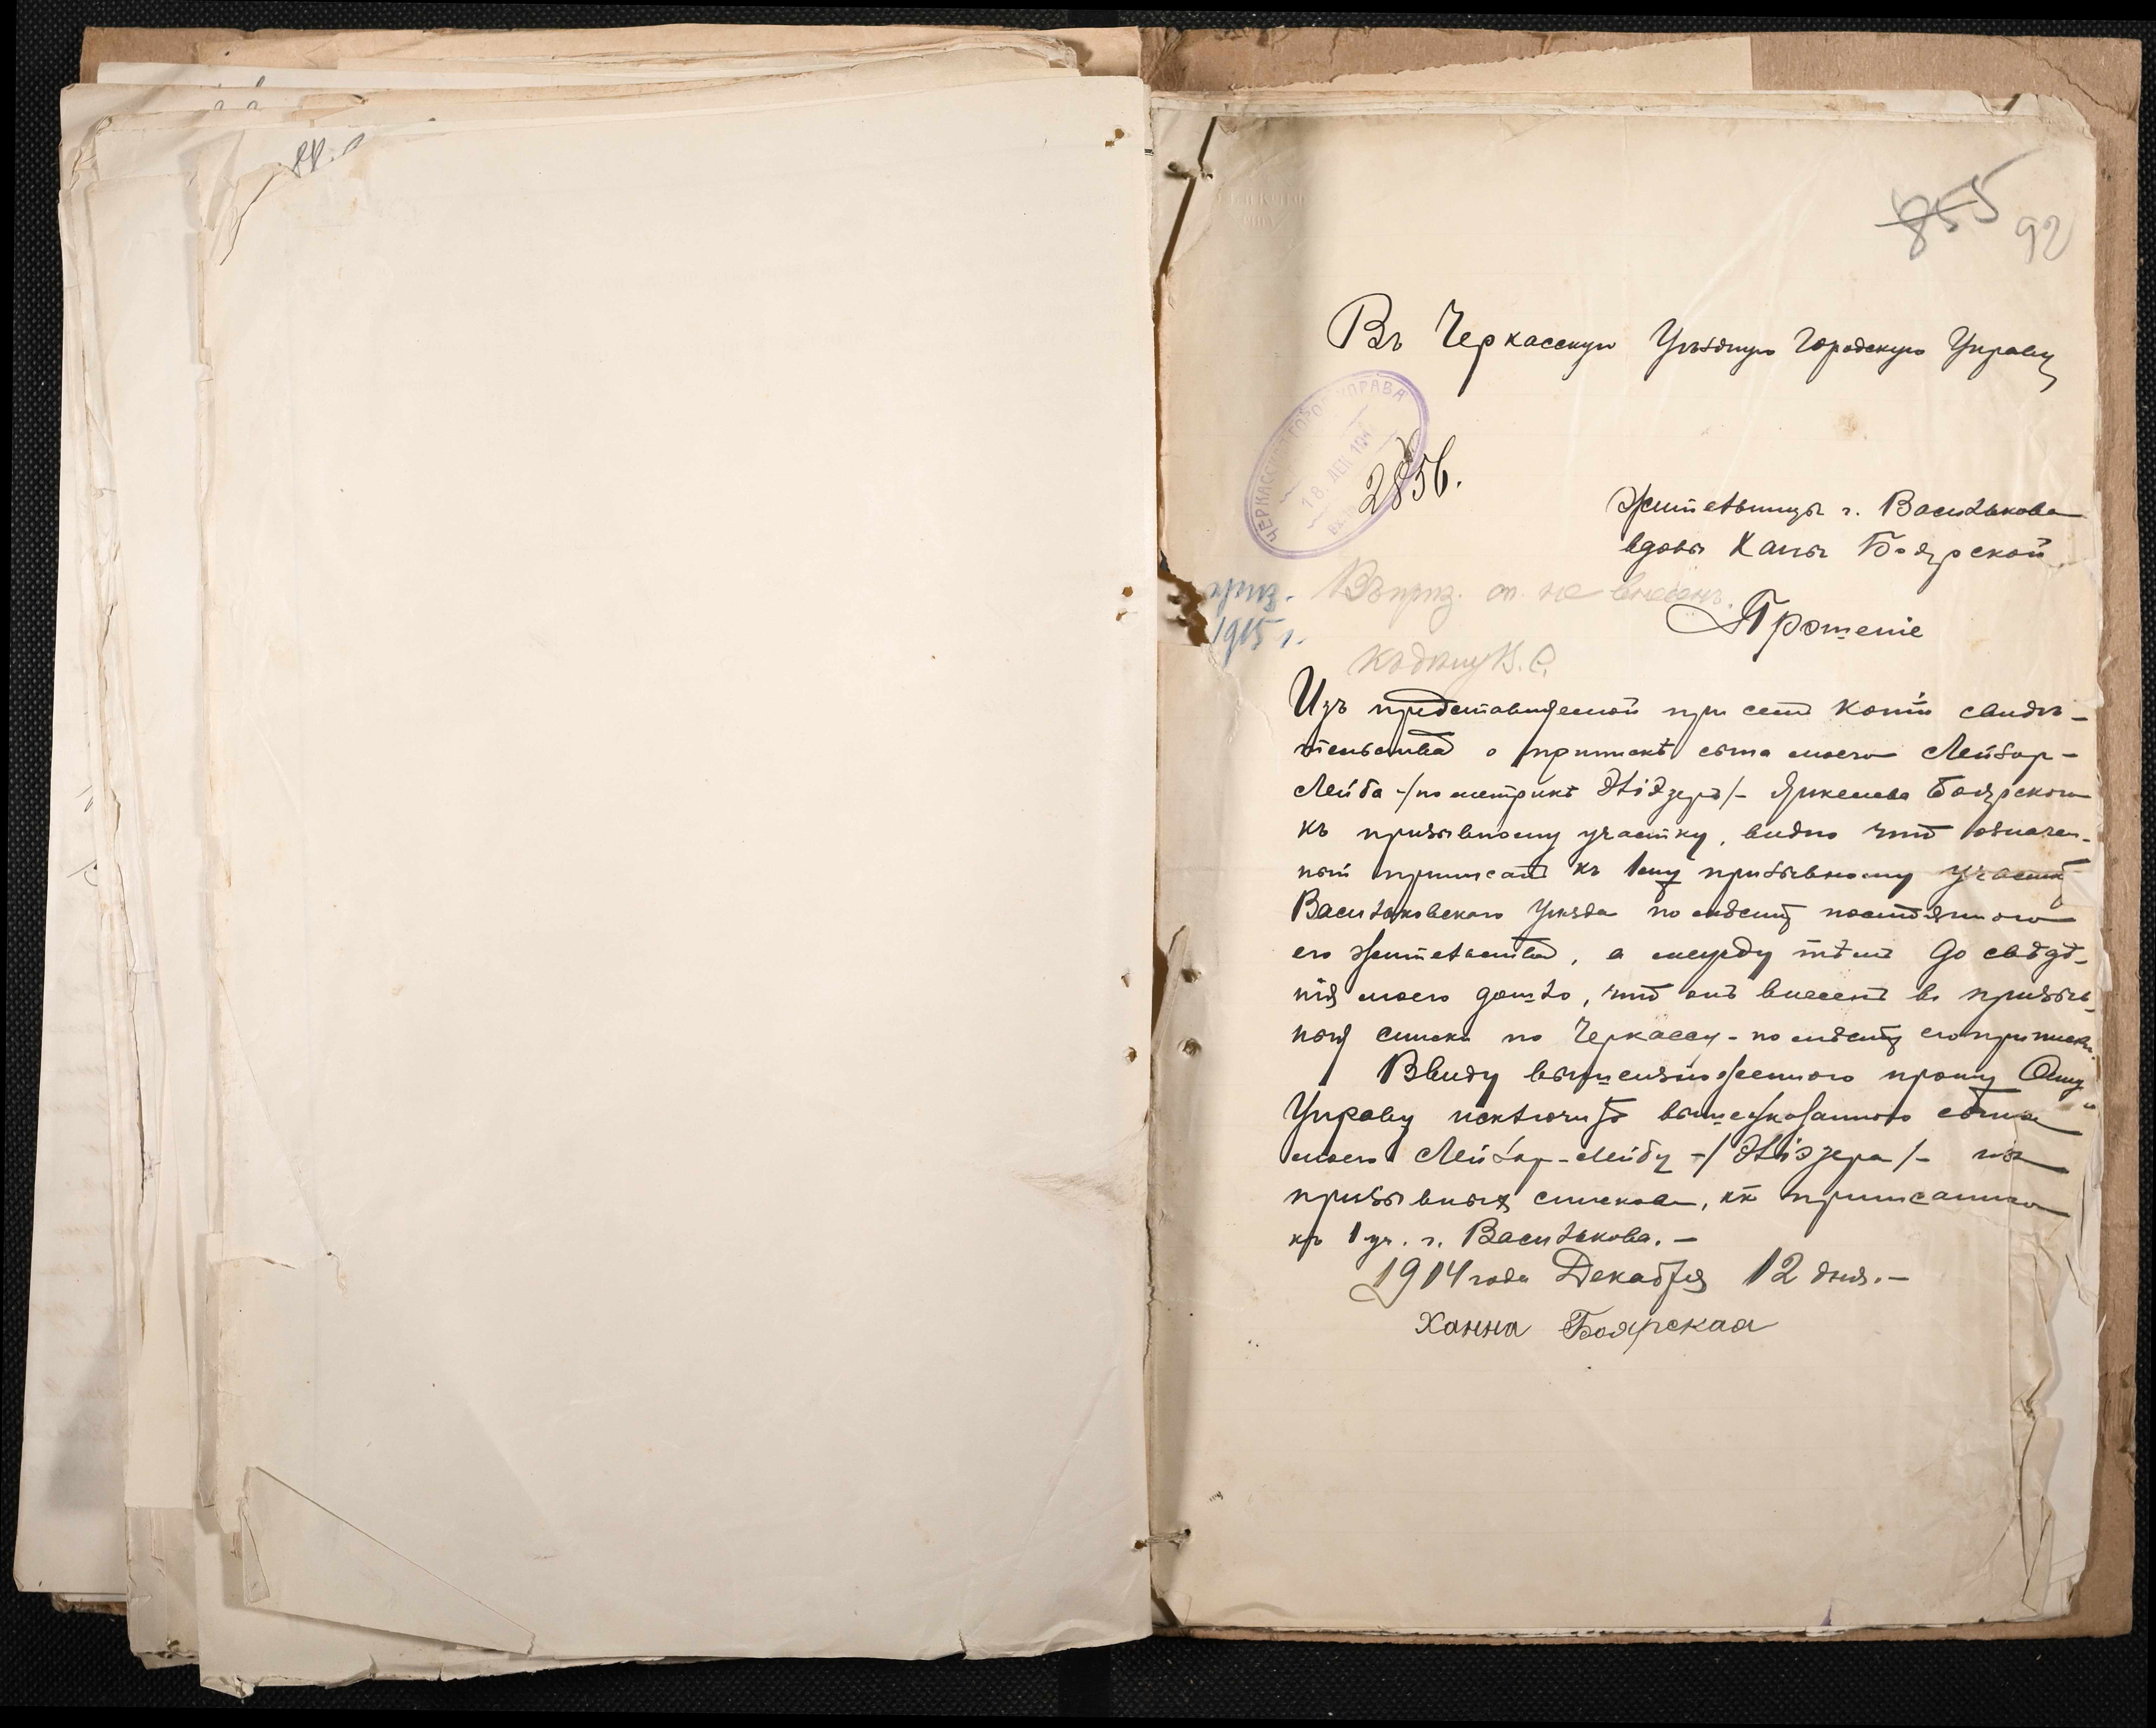 855
92
Въ Черкасскую Уѣздную Городскую Управу
ЧЕРКАССКАЯ ГОРОД. УПРАВА
18 ДЕК 191
2856.
Жительницы г. Василькова
вдовы Ханы Боярской
приз. Въ приз. сп. не внесенъ.
1915 г.
Прошеніе
Изъ представляемой при семъ копіи свидѣ-
тельства о припискѣ сына моего Лейзор-
Лейба -/по метрикѣ Эліэзеръ/- Янкелева Боярского
къ призывному участку, видно что означен-
ный приписанъ къ 1му призывному участку
Васильковского Уѣзда по мѣсту постоянного
его жительства, а между тѣмъ до свѣдѣ-
нія моего дошло, что онъ внесенъ въ призыв-
ной списокъ по Черкассу - по мѣсту его приписки.
Ввиду вышеизложенного прошу Оную
Управу исключить вышеуказанного сына
моего Лейзор-Лейбу -/Эліэзера/- изъ
призывныхъ списковъ, какъ приписанного
къ 1 уч. г. Василькова. -
1914 года Декабря 12 дня. -
Ханна Боярская